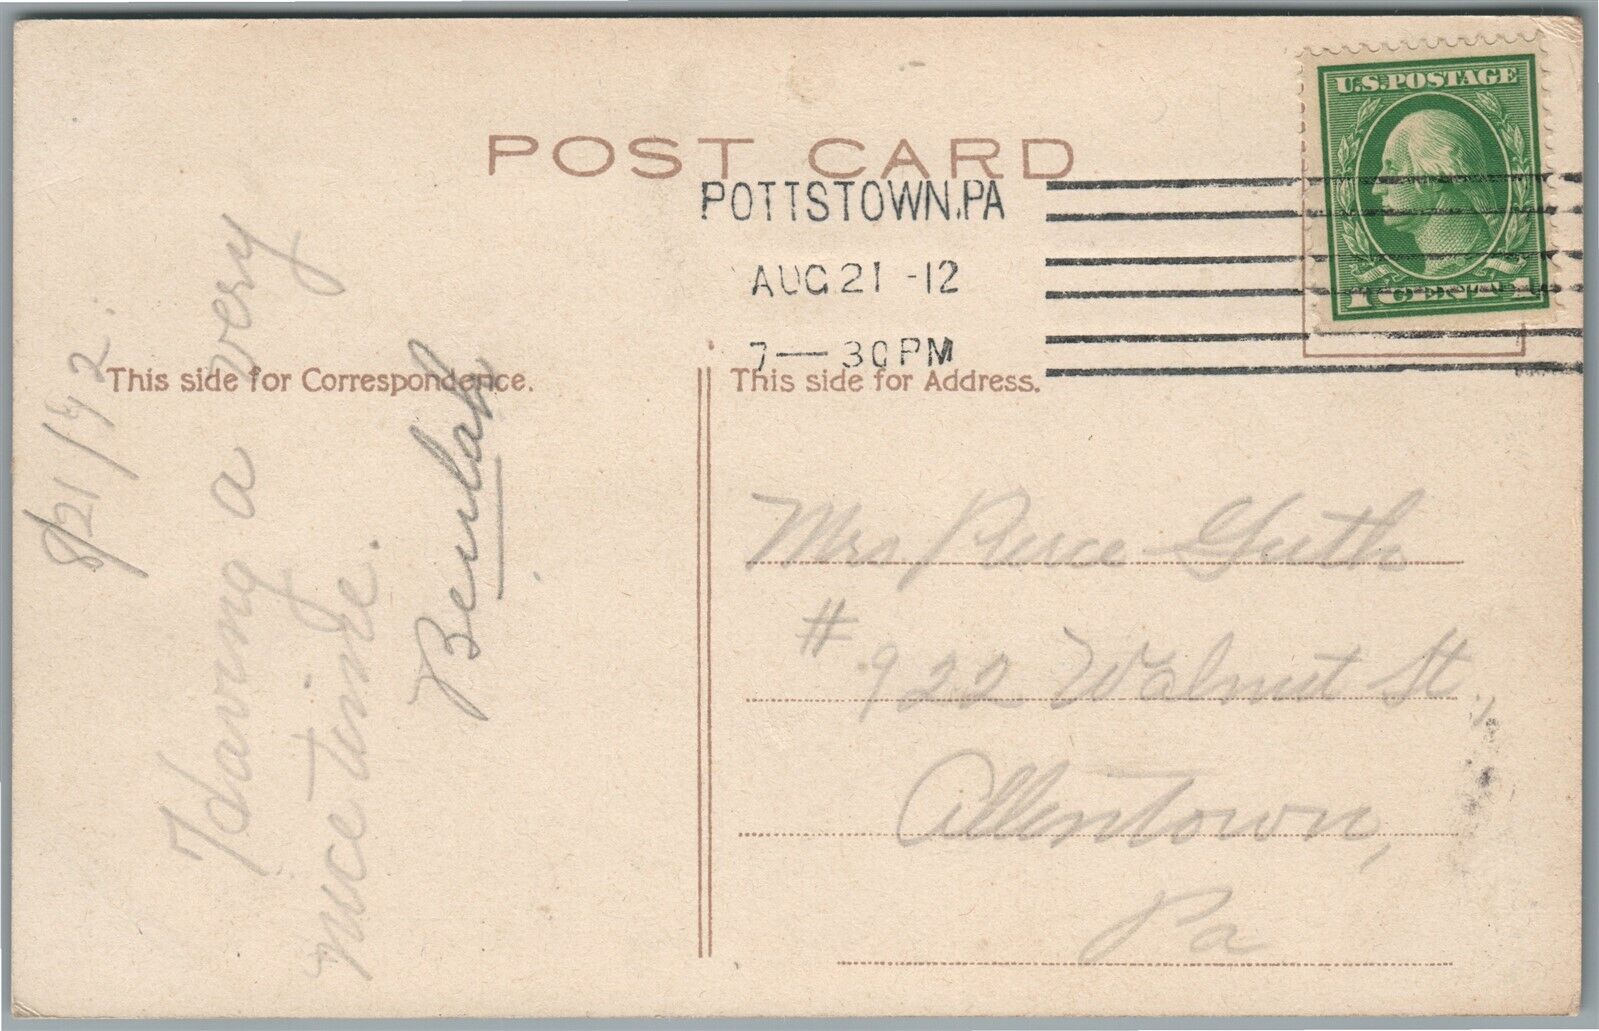 U.S. POSTAGE
1 CENT 1
POST CARD
POTTSTOWN, PA
AUG 21 -12
7 — 30 PM
This side for Correspondence.
This side for Address.
8/21/12.
Having a very
nice time.
Beulah
Mrs Pierce Guth
# 922 Walnut St.,
Allentown,
Pa